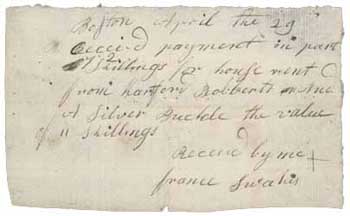 Boston April the 29
Receeid payment in part
of 12 Shillings for house rent
from Robberts
A Silver Buckle the value
of 11 Skillings
Receied by me
france